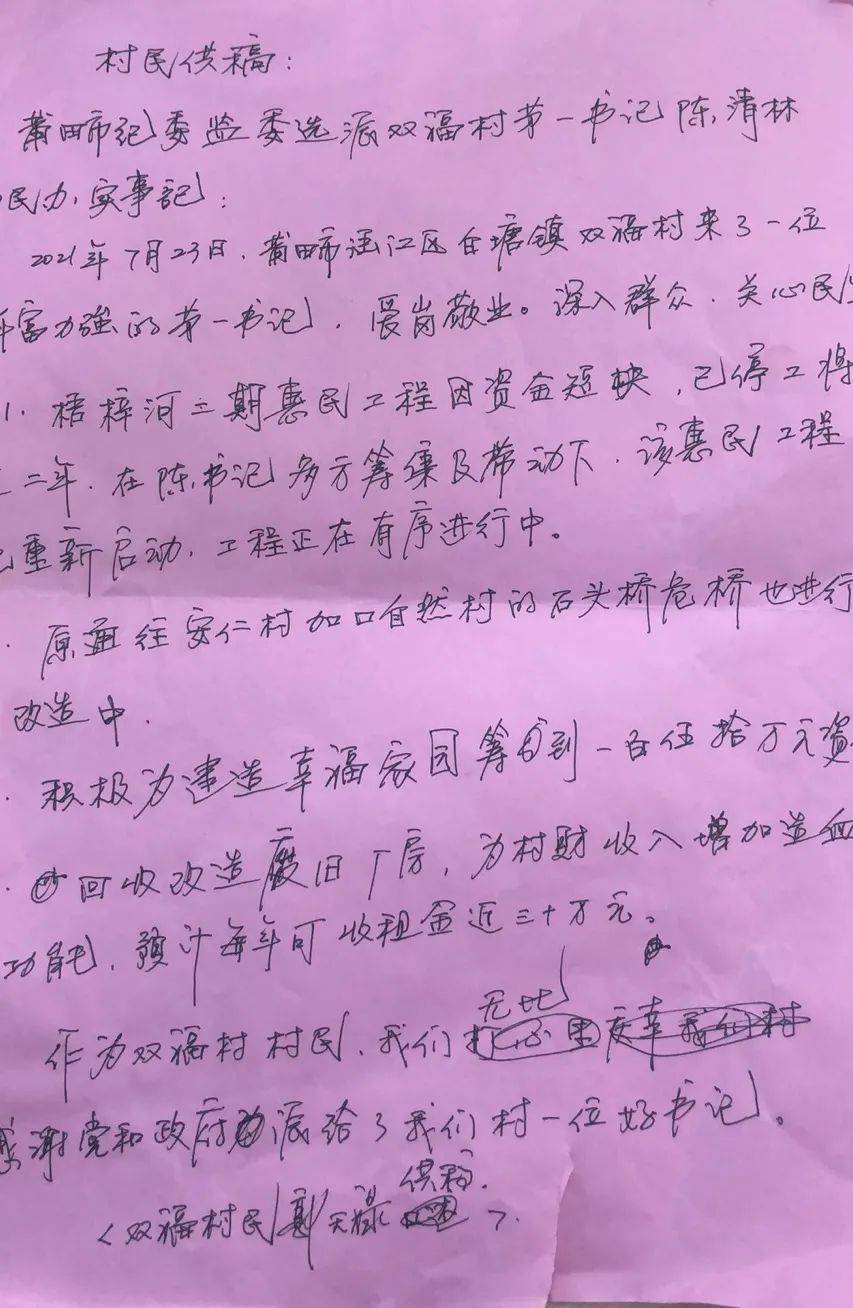 村民供稿：
莆田市纪委监委选派双福村第一书记陈清林
民办实事记：
2021年7月23日，莆田市涵江区白塘镇双福村来了一位
富力强的第一书记，爱岗敬业。深入群众．关心民
1．梧梓河三期惠民工程因资金短缺，已停工将
二年．在陈书记多方筹集及带动下．该惠民工程
已重新启动，工程正在有序进行中。
原通往安仁村加口自然村的石头桥危桥也进行
改造中．
积极为建造幸福家园筹到一百伍拾万元资
回收改造废旧厂房，为村财收入增加造血
功能，预计每年可收租金近三十万元。
作为双福村村民，我们无比
感谢党和政府派给了我们村一位好书记。
〈双福村民郭天禄供稿．〉